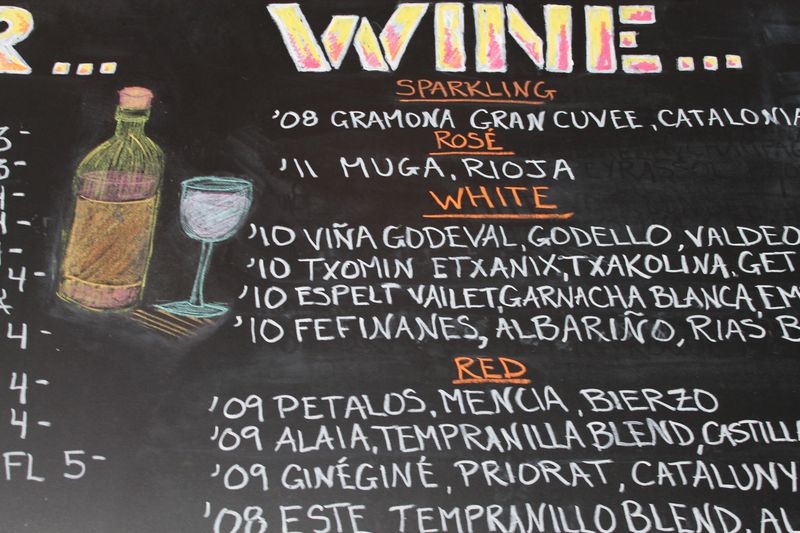 R...
WINE...
SPARKLING
'08 GRAMONA GRAN CUVEE, CATALONIA
ROSÉ
'11 MUGA, RIOJA
WHITE
'10 VIÑA GODEVAL, GODELLO, VALDEO
'10 TXOMIN ETXANIX, TXAKOLINA, GET
'10 ESPELT VAILET, GARNACHA BLANCA, EM
'10 FEFINANES, ALBARIÑO, RIAS B
RED
'09 PETALOS, MENCIA, BIERZO
'09 ALAIA, TEMPRANILLA BLEND, CASTILLA
'09 GINÉGINÉ, PRIORAT, CATALUNY
'08 ESTE TEMPRANILLO BLEND, AL
3-
3-
4-
4-
4-
4-
4-
FL 5-